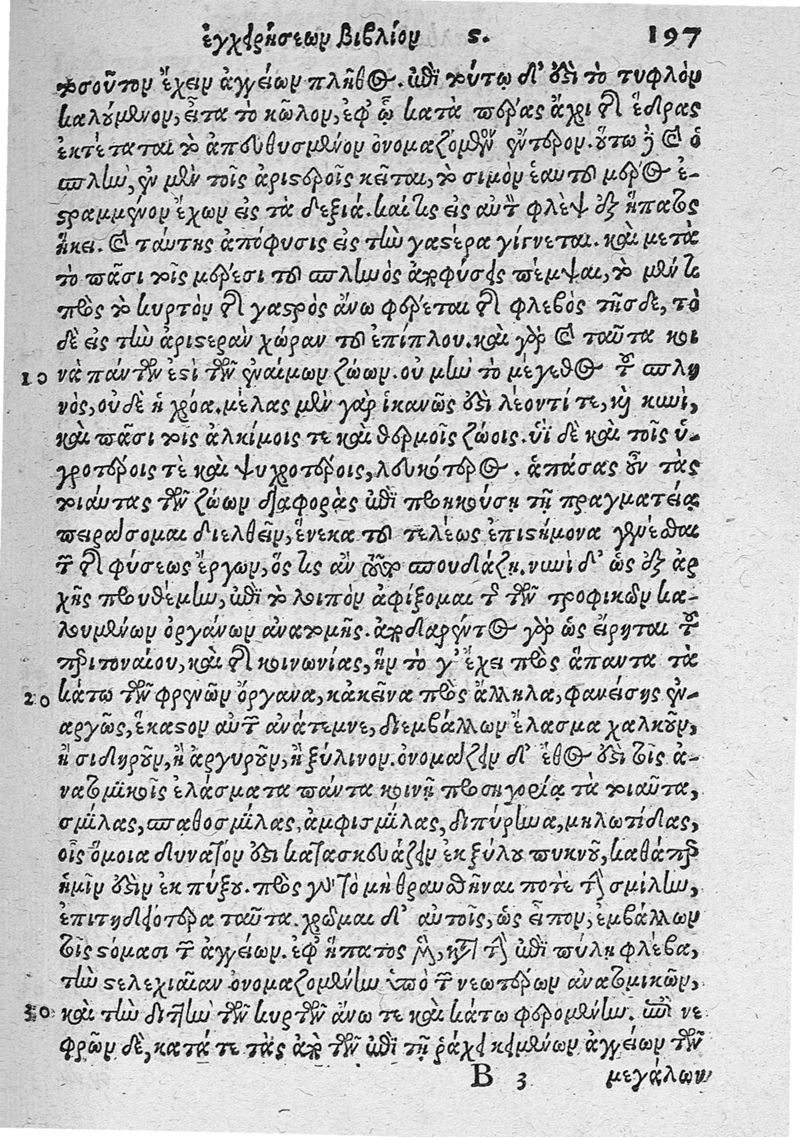 ἐγχειρήσεων βιβλίον ϛ. 197
τοσοῦτον ἔχειν ἀγγείων πλῆθος. ἐπὶ τούτῳ δ' ἐστὶ τὸ τυφλὸν
καλούμενον, εἶτα τὸ κῶλον, ἐφ' ᾧ κατὰ πέρας ἄχρι τῆς ἕδρας
ἐκτέταται τὸ ἀπευθυσμένον ὀνομαζόμενον ἔντερον. οὕτω δὲ καὶ ὁ
σπλὴν, ἐν μὲν τοῖς ἀριστεροῖς κεῖται, τὸ σιμὸν ἑαυτοῦ μέρος ἐ-
στραμμένον ἔχων εἰς τὰ δεξιά. καί τις εἰς αὐτὸν φλὲψ ἐξ ἥπατος
ἥκει. καὶ ταύτης ἀπόφυσις εἰς τὴν γαστέρα γίγνεται. καὶ μετὰ
τὸ πᾶσι τοῖς μέρεσι τοῦ σπληνὸς ἀποφύσεις πέμψαι, τὸ μέν τι
πρὸς τὸ κυρτὸν τῆς γαστρὸς ἄνω φέρεται τῆς φλεβὸς τῆσδε, τὸ
δὲ εἰς τὴν ἀριστερὰν χώραν τοῦ ἐπίπλου. καὶ γὰρ καὶ ταῦτα κοι
10 νὰ πάντων ἐστὶ τῶν ἐναίμων ζώων. οὐ μὴν τὸ μέγεθος τοῦ σπλη
νός, οὐδὲ ἡ χρόα. μέλας μὲν γὰρ ἱκανῶς ἐστὶ λέοντί τε, καὶ κυνὶ,
καὶ πᾶσι τοῖς ἀλκίμοις τε καὶ θερμοῖς ζώοις. ὑῒ δὲ καὶ τοῖς ὑ-
γροτέροις τὲ καὶ ψυχροτέροις, λευκότερος. ἁπάσας οὖν τὰς
τοιαύτας τῶν ζώων διαφορὰς ἐπὶ προηκούσῃ τῇ πραγματείᾳ
πειράσομαι διελθεῖν, ἕνεκα τοῦ τελέως ἐπιστήμονα γενέσθαι
τῶν τῆς φύσεως ἔργων, ὅς τις ἂν περὶ αὐτῶν σπουδάζῃ. νυνὶ δ' ὡς ἐξ ἀρ
χῆς προυθέμην, ἐπὶ τὸ λοιπὸν ἀφίξομαι τῆς τῶν τροφικῶν κα-
λουμένων ὀργάνων ἀνατομῆς. ἀποδαρέντος γὰρ ὡς εἴρηται τοῦ
περιτοναίου, καὶ τῆς κοινωνίας, ἣν τό γ' ἔχει πρὸς ἅπαντα τὰ
20 κάτω τῶν φρενῶν ὄργανα, κἀκεῖνα πρὸς ἄλληλα, φανείσης ἐν-
αργῶς, ἕκαστον αὐτῶν ἀνάτεμνε, διεμβάλλων ἔλασμα χαλκοῦν,
ἢ σιδηροῦν, ἢ ἀργυροῦν, ἢ ξύλινον. ὀνομάζειν δ' ἔθος ἐστὶ τοῖς ἀ-
νατομικοῖς ἐλάσματα πάντα κοινῇ προσηγορίᾳ τὰ τοιαῦτα,
σμίλας, σπαθοσμίλας, ἀμφισμίλας, διπύρηνα, μηλωτίδας,
οἷς ὅμοια δυνατόν ἐστι κατασκευάζειν ἐκ ξύλου πυκνοῦ, καθάπερ
ἡμῖν ἐστὶν ἐκ πύξου. πρὸς γὰρ τὸ μὴ θραυσθῆναι ποτὲ τὴν σμίλην,
ἐπιτηδειότερα ταῦτα. χρῶμαι δ' αὐτοῖς, ὡς εἶπον, ἐμβάλλων
τοῖς στόμασι τῶν ἀγγείων. ἐφ' ἥπατος μὲν, κατὰ τὴν ἐπὶ πύλῃ φλέβα,
τὴν στελεχιαίαν ὀνομαζομένην ὑπὸ τῶν νεωτέρων ἀνατομικῶν,
30 καὶ τὴν διττὴν τῶν κυρτῶν ἄνω τε καὶ κάτω φερομένην. ἐπὶ νε
φρῶν δὲ, κατά τε τὰς ἀπὸ τῶν ἐπὶ τῇ ῥάχει κειμένων ἀγγείων τῶν
B 3 μεγάλων